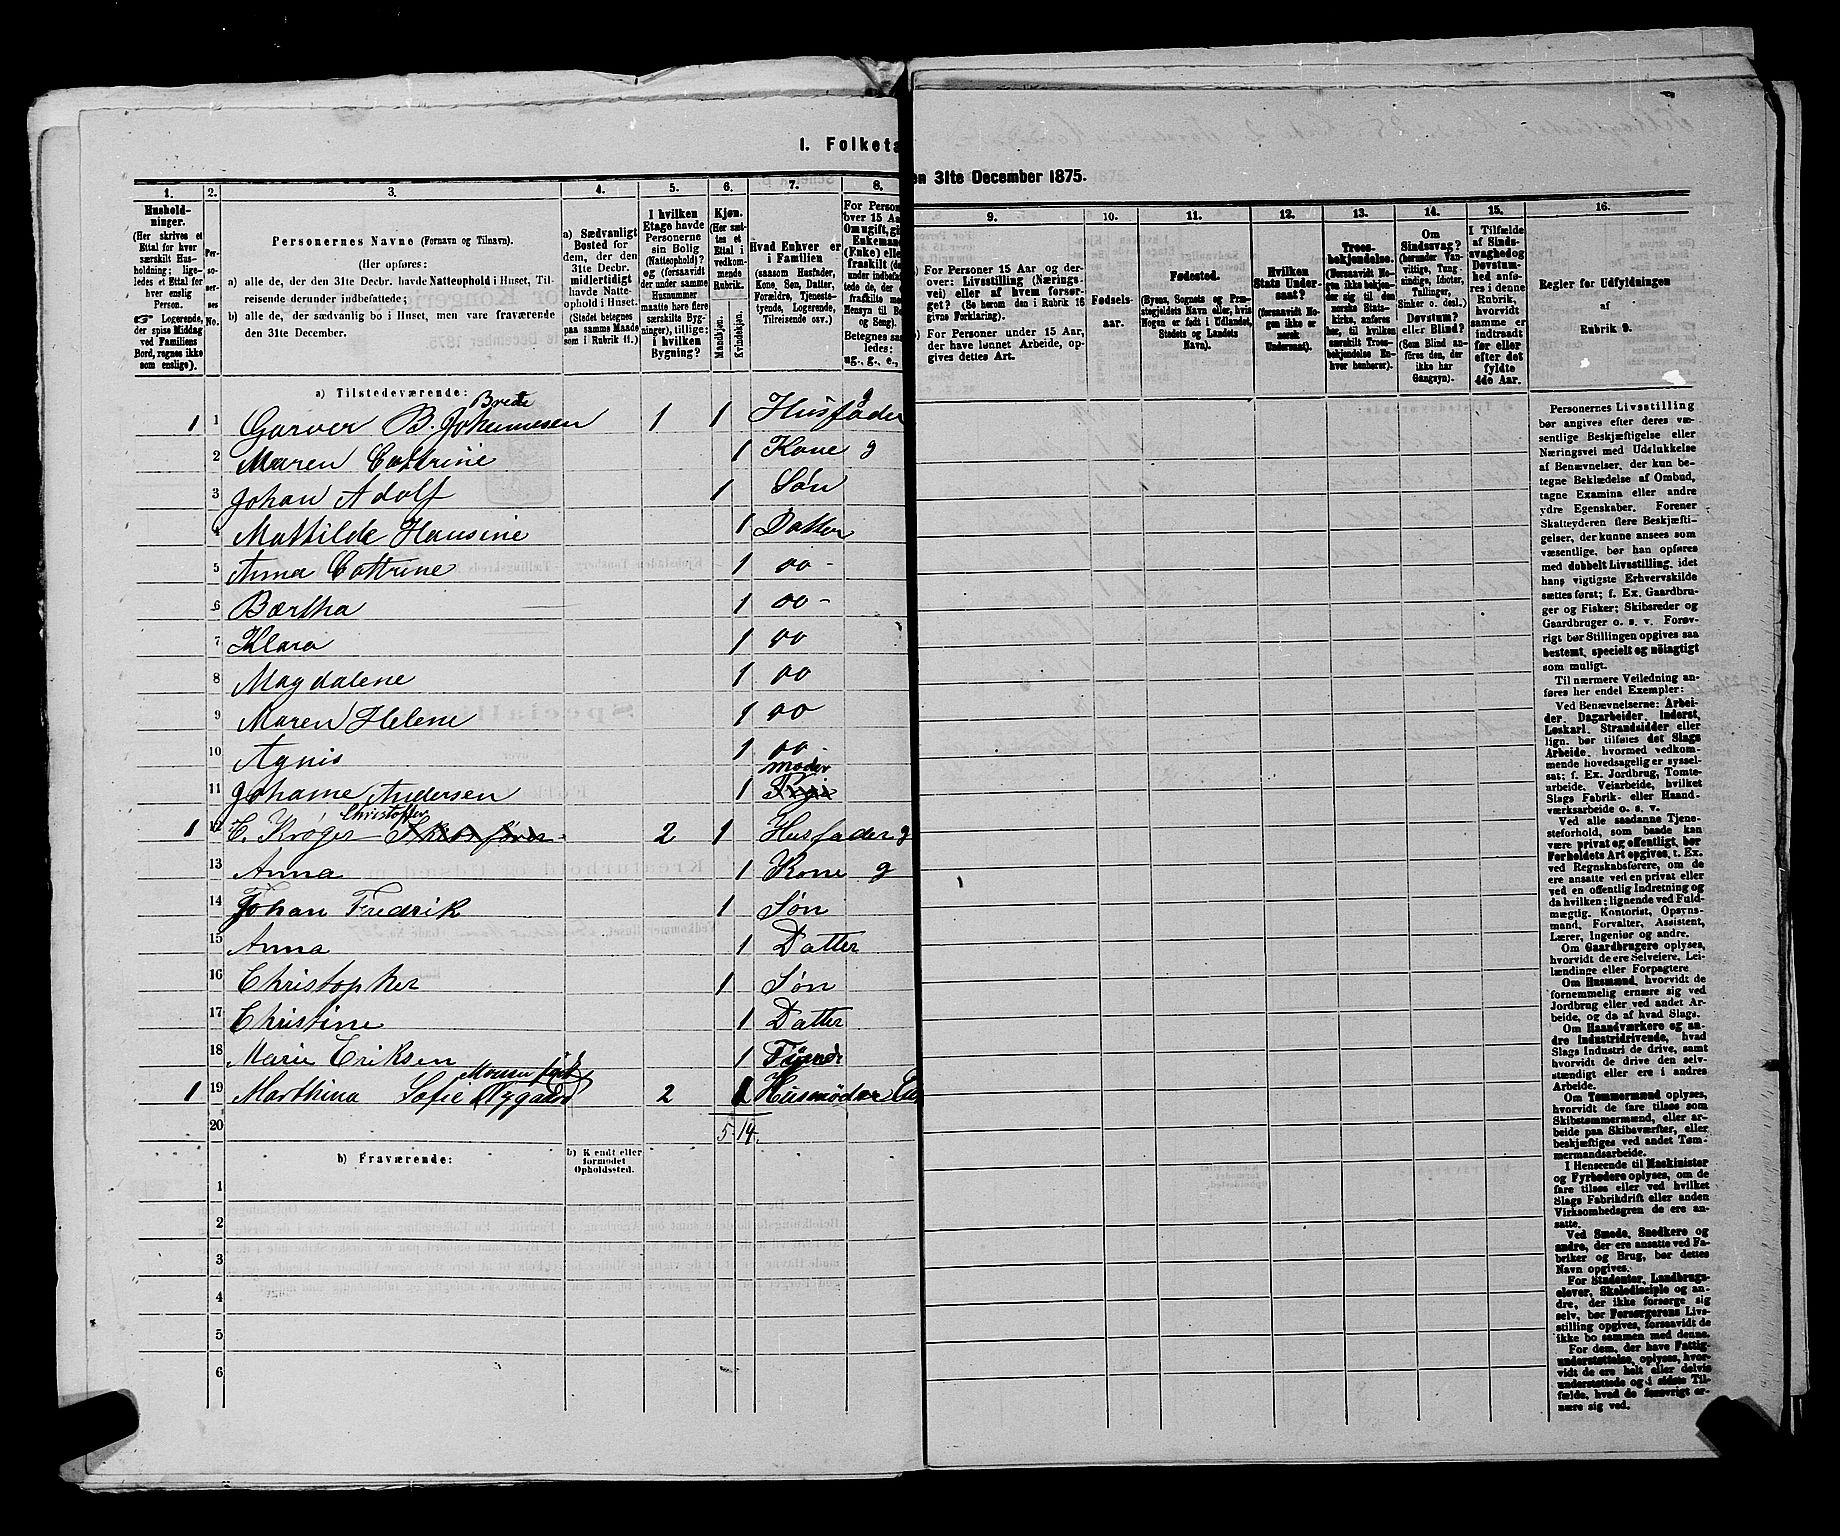 I. Folketæ
en 31te December 1875.
1.
Hushold-
ninger.
(Her skrives et
Ettal for hver
særskilt Hus-
holdning; lige-
ledes et Ettal
for hver
enslig
Person.
Logerende,
der spise Middag
ved Familiens
Bord, regnes ikke
som enslige).
2.
Per-
so-
ner-
nes
No.
3.
Personernes Navne (Fornavn og Tilnavn).
(Her opføres:
a) alle de, der den 31te Decbr. havde Natteophold i Huset, Til-
reisende derunder indbefattede;
b) alle de, der sædvanlig bo i Huset, men vare fraværende
den 31te December.
4.
a) Sædvanligt
Bosted for
dem, der den
31te Decbr.
midlertidigt
havde Natte-
ophold i Huset.
(Stedet betegnes
paa samme Maade
som i Rubrik 11.)
5.
I hvilken
Etage havde
Personerne
sin Bolig
(Natteophold)?
og (forsaavidt
der under samme
Husnummer
maatte høre flere
særskilte Byg-
ninger), tillige:
i hvilken
Bygning?
6.
Kjøn.
(Her sæt-
tes et
Ettal i
vedkom-
mende
Rubrik.
Mandkjøn.
Kvindekjøn.
7.
Hvad Enhver er
i Familien
(saasom Husfader,
Kone, Søn, Datter,
Forældre, Tjeneste-
tyende, Logerende,
Tilreisende osv.)
8.
For Person
over 15 Aa
Om ugift, gi
Enkemæ
(Enke) elle
fraskilt
Betegnes saa
ledes:
ug., g., e.,
9.
For Personer 15 Aar og der-
over: Livsstilling (Nærings-
vei) eller af hvem forsør-
get? (Se herom den i Rubrik 16
givne Forklaring).
For Personer under 15 Aar,
der have lønnet Arbeide, op-
gives dettes Art.
10.
Fødsels-
aar.
11.
Fødested.
(Byens, Sognets og Præ-
stegjeldets Navn eller, hvis
Nogen er født i Udlandet,
Stedets og Landets
Navn).
12.
Hvilken
Stats Under-
saat?
(forsaavidt No-
gen ikke er
norsk
Undersaat).
13.
Troes-
bekjendelse.
(forsaavidt No-
gen ikke bekjen-
der sig til den
norske Stats-
kirke, anføres
her, til hvilken
særskilt Troes-
bekjendelse En-
hver henhører).
14.
Om
Sindssvag?
(herunder Van-
vittige, Tung-
sindige, Idioter,
Tullinger,
Sinker o. desl.)
Døvstum?
eller Blind?
(Som Blind an-
føres den, der
ikke har
Gangsyn).
15.
I Tilfælde
af Sinds-
svaghed og
Døvstum-
hed anfø-
res i denne
Rubrik,
hvorvidt
samme er
indtraadt
før eller
efter det
fyldte
4de Aar.
16.
Regler for Udfyldningen
af
Rubrik 9.
a) Tilstedeværende:
Brede
1 1 Garver B. Johannesen 1 1 Husfader g
2 Maren Cattrine 1 Kone g
3 Johan Adolf 1 Søn
4 Mathilde Hansine 1 Datter
5 Anna Cattrine 1 oo -
6 Bærtha 1 oo -
7 Klara 1 oo
8 Magdalene 1 oo
9 Maren Helene 1 oo
10 Agnis 1 oo
moder
11 Johanne Andersen 1
Christoffer
1 12 C. Krøger 2 1 Husfader g
13 Anna 1 Kone g
14 Johan Fredrik 1 Søn
15 Anna 1 Datter
16 Christopher 1 Søn
17 Christine 1 Datter
18 Marie Eriksen 1
1 19 Marthina Sofie Nygaard 2 1 Husmoder
20 5 14
b) Fraværende:
b) Kendt eller
formodet
Opholdssted.
1
2
3
4
5
6
Personernes Livsstilling
bør angives efter deres væ-
sentlige Beskjæftigelse eller
Næringsvei med Udelukkelse
af Benævnelser, der kun be-
tegne Beklædelse af Ombud,
tagne Examina eller andre
ydre Egenskaber. Forener
Skatteyderen flere Beskjæfti-
gelser, der kunne ansees som
væsentlige, bør han opføres
med dobbelt Livsstilling, idet
hans vigtigste Erhvervskilde
sættes først; f. Ex. Gaardbru-
ger og Fisker; Skibsreder og
Gaardbruger o. s. v. Forøv-
rigt bør Stillingen opgives saa
bestemt, specielt og nöiagtigt
som muligt.
Til nærmere Veiledning an-
føres her endel Exempler:
Ved Benævnelserne: Arbei-
der, Dagarbeider, Inderst,
Løskarl, Strandsidder eller
lign. bør tilføies det Slags
Arbeide, hvormed vedkom-
mende hovedsagelig er syssel-
sat; f. Ex. Jordbrug, Tomte-
arbeide, Veiarbeide, hvilket
Slags Fabrik- eller Haand-
værksarbeide o. s. v.
Ved alle saadanne Tjene-
steforhold, som baade kan
være privat og offentligt, bør
Forholdets Art opgives, t. Ex.
ved Regnskabsførere, om de
ere ansatte ved en privat eller
ved en offentlig Indretning og
da hvilken; lignende ved Fuld-
mægtig, Kontorist, Opsyns-
mand, Forvalter, Assistent,
Lærer, Ingeniør og andre.
Om Gaardbrugere oplyses,
hvorvidt de ere Selveiere, Lei-
lændinge eller Forpagtere
Om Husmænd, hvorvidt de
fornemmelig ernære sig ved
Jordbrug eller ved andet Ar-
beide, og da af hvad Slags.
Om Haandværkere og an-
dre Industridrivende, hvad
Slags Industri de drive, samt
hvorvidt de drive den selv-
stændigt eller ere i andres
Arbeide.
Om Tømmermænd oplyses,
hvorvidt de fare tilsøs som
Skibstømmermænd, eller ar-
beide paa Skibsværfter, eller
beskjæftiges ved andet Tøm-
mermandsarbeide.
I Henseende til Maskinister
og Fyrbødere oplyses, om de
fare tilsøs eller ved hvilket
Slags Fabrikdrift eller anden
Virksomhedsgren de ere an-
satte.
Ved Smede, Snedkere og
andre, der ere ansatte ved Fa-
briker og Brug, bør dettes
Navn opgives.
For Studenter, Landbrugs-
elever, Skoledisciple og an-
dre, der ikke forsørge sig
selv, bør Forsørgerens Livs-
stilling opgives, forsaavidt de
ikke bo sammen med denne.
For dem, der have Fattig-
understøttelse, oplyses, hvor-
vidt de ere helt eller delvis
understøttede og i sidste Til-
fælde, hvad de forøvrigt er-
nære sig ved.